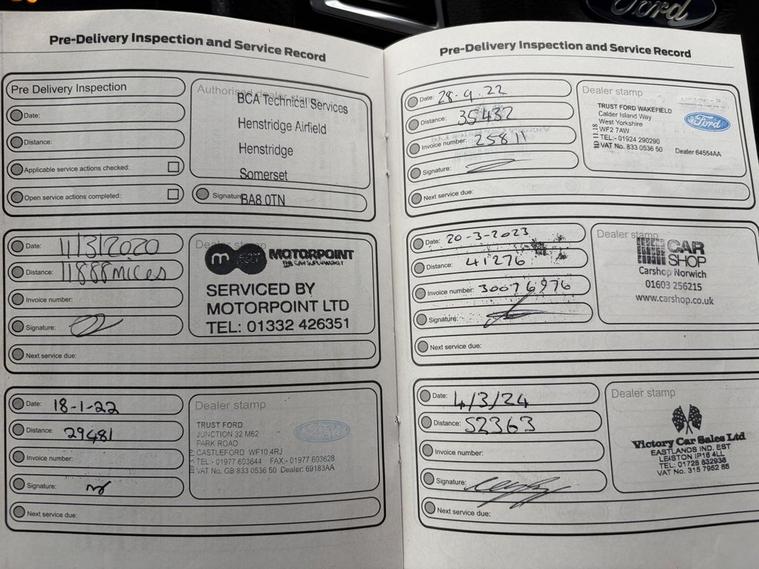 Ford
Pre-Delivery Inspection and Service Record
Pre Delivery Inspection
Date:
Distance:
Applicable service actions checked:
Open service actions completed:
Authorised dealer
BCA Technical Services
Henstridge Airfield
Henstridge
Somerset
Signature
BA8 0TN
Date: 11/3/2020
Distance: 11888 miles
Invoice number:
Signature:
Next service due:
Dealer stamp
MOTORPOINT
THE CAR SUPERMARKET
SERVICED BY
MOTORPOINT LTD
TEL: 01332 426351
Date: 18-1-22
Distance: 29481
Invoice number:
Signature:
Next service due:
Dealer stamp
TRUST FORD
JUNCTION 32 M62
PARK ROAD
CASTLEFORD WF10 4RJ
TEL:- 01977 603644 FAX:- 01977 603628
VAT No. GB 833 0536 50 Dealer: 69183AA
Pre-Delivery Inspection and Service Record
Date: 28.9.22
Distance: 35432
Invoice number: 25811
Signature:
Next service due:
Dealer stamp
TRUST FORD WAKEFIELD
Calder Island Way
West Yorkshire
WF2 7AW
TEL:- 01924 290290
VAT No. 833 0536 50 Dealer 64554AA
Ford
Date: 20-3-2023
Distance: 41276
Invoice number: 30076976
Signature:
Next service due:
Dealer stamp
CAR
SHOP
Carshop Norwich
01603 256215
www.carshop.co.uk
Date: 4/3/24
Distance: 52363
Invoice number:
Signature:
Next service due:
Dealer stamp
Victory Car Sales Ltd
EASTLANDS IND. EST
LEISTON IP16 4LL
TEL: 01728 832938
VAT No. 315 7952 65